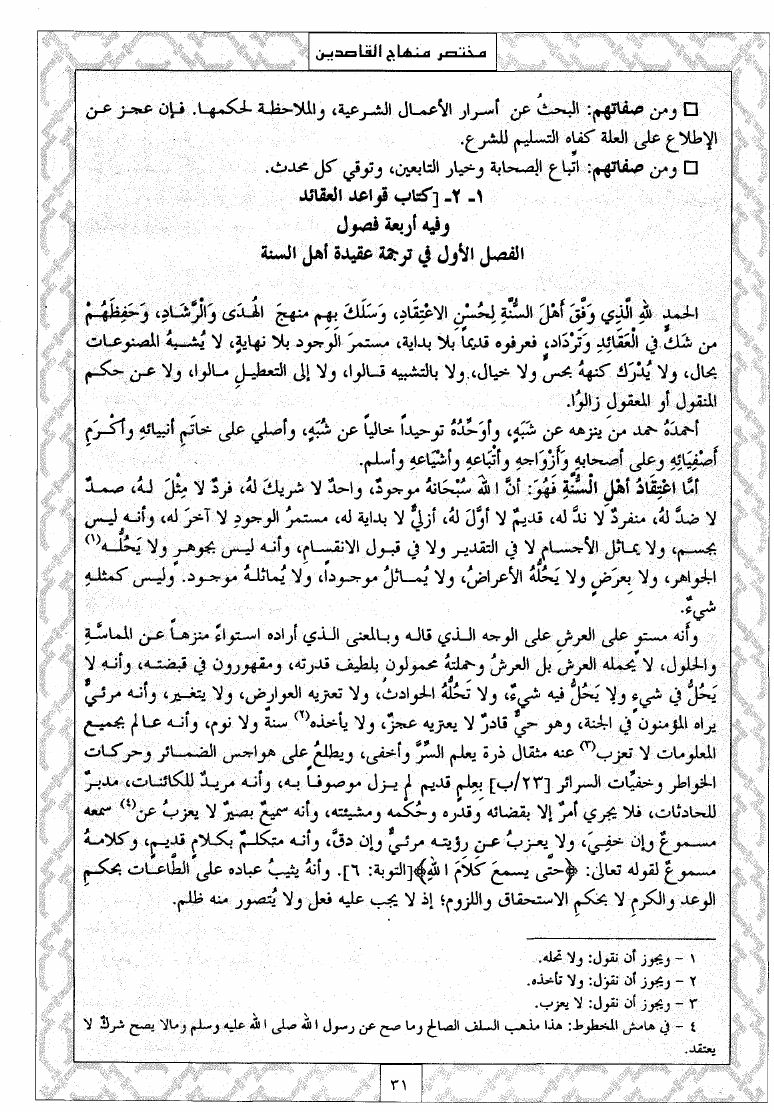 مختصر منهاج القاصدين
□ ومن صفاتهم: البحثُ عن أسرار الأعمال الشرعية، والملاحظة لحكمها. فإن عجز عن
الإطلاع على العلة كفاه التسليم للشرع.
□ ومن صفاتهم: اتّباع الصحابة وخيار التابعين، وتوقي كل محدث.
١ـ ٢ـ [كتاب قواعد العقائد
وفيه أربعة فصول
الفصل الأول في ترجمة عقيدة أهل السنة
الحمد للهِ الَّذِي وَفَّقَ أَهْلَ السُّنَّةِ لِحُسْنِ الاعْتِقَادِ، وَسَلَكَ بِهِم منهجَ الهُدَى وَالْرَّشَادِ، وَحَفِظَهُمْ
من شَكٍّ في الْعَقَائِدِ وَتَرْدَادٍ، فعرفوه قديماً بلا بداية، مستمرَ الوجود بلا نهايةٍ، لا يُشبهُ المصنوعات
بحال، ولا يُدْرَك كنههُ بحسٍّ ولا خيال، ولا بالتشبيه قالوا، ولا إلى التعطيلِ مالوا، ولا عن حكم
المنقول أو المعقولِ زالوا.
أحمدَهُ حمد من ينزهه عن شَبَهٍ، وأُوَحِّدُهُ توحيداً خالياً عن شُبَهٍ، وأصلي على خاتمِ أنبيائهِ وأكْرَمِ
أَصْفِيَائِهِ وعلى أصحابهِ وَأَزْوَاجِهِ وأتْبَاعهِ وأشْيَاعهِ وأسلم.
أمَّا اعْتِقَادُ أهْلِ الْسُّنَّةِ فَهُوَ: أنَّ اللهَ سُبْحَانَهُ موجودٌ، واحدٌ لا شريكَ لهُ، فردٌ لا مِثْلَ لهُ، صمدٌ
لا ضدَّ لهُ، منفردٌ لا ندَّ له، قديمٌ لا أوَّلَ لهُ، أزليٌّ لا بداية له، مستمرُ الوجودِ لا آخرَ له، وأنه ليس
بجسم، ولا يماثل الأجسام لا في التقدير ولا في قبول الانقسام، وأنه ليس بجوهرٍ ولا يَحُلُّه(١)
الجواهر، ولا بِعرَضٍ ولا يَحُلُّهُ الأعراضُ، ولا يُماثلُ موجوداً، ولا يُماثلهُ موجود. وليس كمثلهِ
شيءٌ.
وأنه مستوٍ على العرشِ على الوجه الذي قاله وبالمعنى الذي أراده استواءً منزهاً عن المماسَّةِ
والحلول، لا يحمله العرش بل العرشُ وحملتهُ محمولون بلطيف قدرته، ومقهورون في قبضته، وأنهِ لا
يَحُلُّ في شيءٍ ولا يَحُلُّ فيه شيءٌ، ولا تَحُلُّهُ الحوادثُ، ولا تعتريه العوارض، ولا يتغير، وأنه مرئيٌّ
يراه المؤمنون في الجنة، وهو حيٌّ قادرٌ لا يعتريه عجزٌ، ولا يأخذه(٢) سنةٌ ولا نوم، وأنه عالم بجميع
المعلومات لا تعزب(٣) عنه مثقال ذرة يعلم السرَّ وأخفى، ويطلعُ على هواجس الضمائر وحركات
الخواطر وخفيَّات السرائر [٢٣/ب] بِعِلمٍ قديم لم يزل موصوفاً به، وأنه مريدٌ للكائنات، مدبرٌ
للحادثات، فلا يجري أمرٌ إلا بقضائه وقدره وحُكْمه ومشيئته، وأنه سميعٌ بصيرٌ لا يعزبُ عن(٤) سمعه
مسموعٌ وإن خفيَ، ولا يعزبُ عن رؤيته مرئيٌّ وإن دقَّ، وأنه متكلمٌ بكلامٍ قديمٍ، وكلامهُ
مسموعٌ لقوله تعالى: ﴿حتَّى يسمعَ كَلَامَ اللهِ﴾[التوبة: ٦]. وأنهُ يثيبُ عباده على الطَّاعات بحكمِ
الوعد والكرمِ لا بحكمِ الاستحقاق واللزوم؛ إذ لا يجب عليه فعل ولا يُتصور منه ظلم.
١ - ويجوز أن نقول: ولا تحله.
٢ - ويجوز أن نقول: ولا تأخذه.
٣ - ويجوز أن نقول: لا يعزب.
٤ - في هامش المخطوط: هذا مذهب السلف الصالح وما صح عن رسول الله صلى الله عليه وسلم ومالا يصح شركٌ لا
يعتقد.
٣١